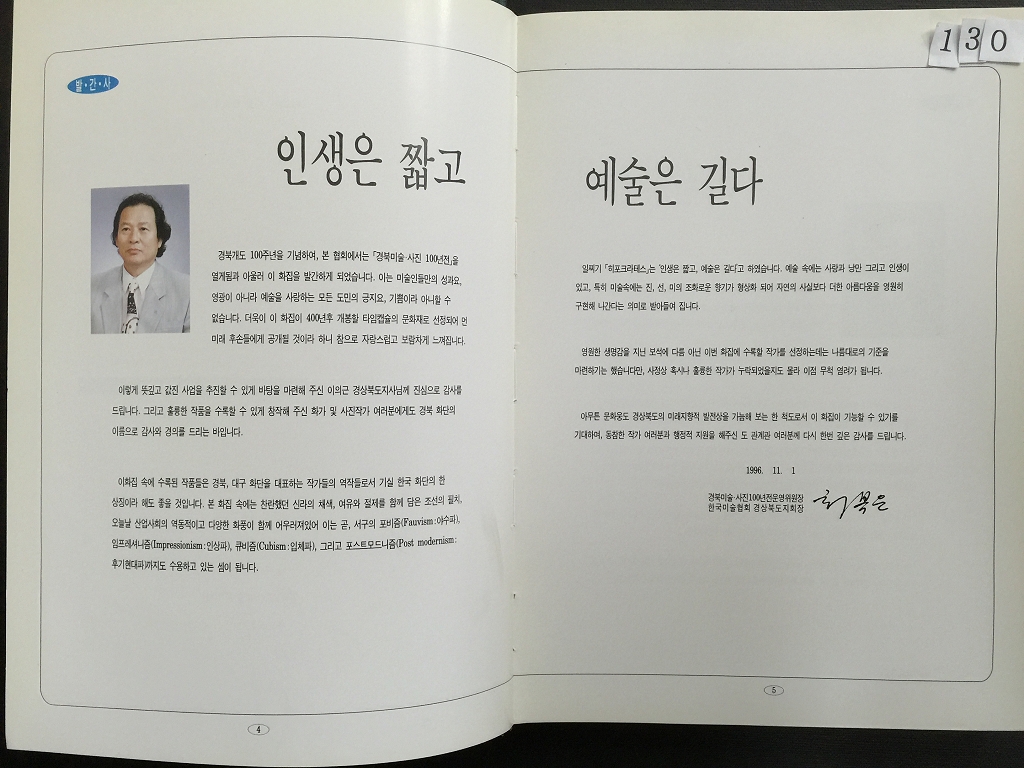 발·간·사
인생은 짧고
경북개도 100주년을 기념하여, 본 협회에서는 「경북미술·사진 100년전」을
열게됨과 아울러 이 화집을 발간하게 되었습니다. 이는 미술인들만의 성과요,
영광이 아니라 예술을 사랑하는 모든 도민의 긍지요, 기쁨이라 아니할 수
없습니다. 더욱이 이 화집이 400년후 개봉할 타임캡슐의 문화재로 선정되어 먼
미래 후손들에게 공개될 것이라 하니 참으로 자랑스럽고 보람차게 느껴집니다.
이렇게 뜻깊고 값진 사업을 추진할 수 있게 바탕을 마련해 주신 이의근 경상북도지사님께 진심으로 감사를
드립니다. 그리고 훌륭한 작품을 수록할 수 있게 창작해 주신 화가 및 사진작가 여러분에게도 경북 화단의
이름으로 감사와 경의를 드리는 바입니다.
이화집 속에 수록된 작품들은 경북, 대구 화단을 대표하는 작가들의 역작들로서 기실 한국 화단의 한
상징이라 해도 좋을 것입니다. 본 화집 속에는 찬란했던 신라의 채색, 여유와 절제를 함께 담은 조선의 필치,
오늘날 산업사회의 역동적이고 다양한 화풍이 함께 어우러져있어 이는 곧, 서구의 포비즘(Fauvism:야수파),
임프레셔니즘(Impressionism:인상파), 큐비즘(Cubism:입체파), 그리고 포스트모드니즘(Post modernism:
후기현대파)까지도 수용하고 있는 셈이 됩니다.
4
130
예술은 길다
일찌기 「히포크라테스」는 '인생은 짧고, 예술은 길다'고 하였습니다. 예술 속에는 사랑과 낭만 그리고 인생이
있고, 특히 미술속에는 진, 선, 미의 조화로운 향기가 형상화 되어 자연의 사실보다 더한 아름다움을 영원히
구현해 나간다는 의미로 받아들여 집니다.
영원한 생명감을 지닌 보석에 다름 아닌 이번 화집에 수록할 작가를 선정하는데는 나름대로의 기준을
마련하기는 했습니다만, 사정상 혹시나 훌륭한 작가가 누락되었을지도 몰라 이점 무척 염려가 됩니다.
아무튼 문화웅도 경상북도의 미래지향적 발전상을 가늠해 보는 한 척도로서 이 화집이 기능할 수 있기를
기대하며, 동참한 작가 여러분과 행정적 지원을 해주신 도 관계관 여러분께 다시 한번 깊은 감사를 드립니다.
1996. 11. 1
경북미술·사진100년전운영위원장
한국미술협회 경상북도지회장
5